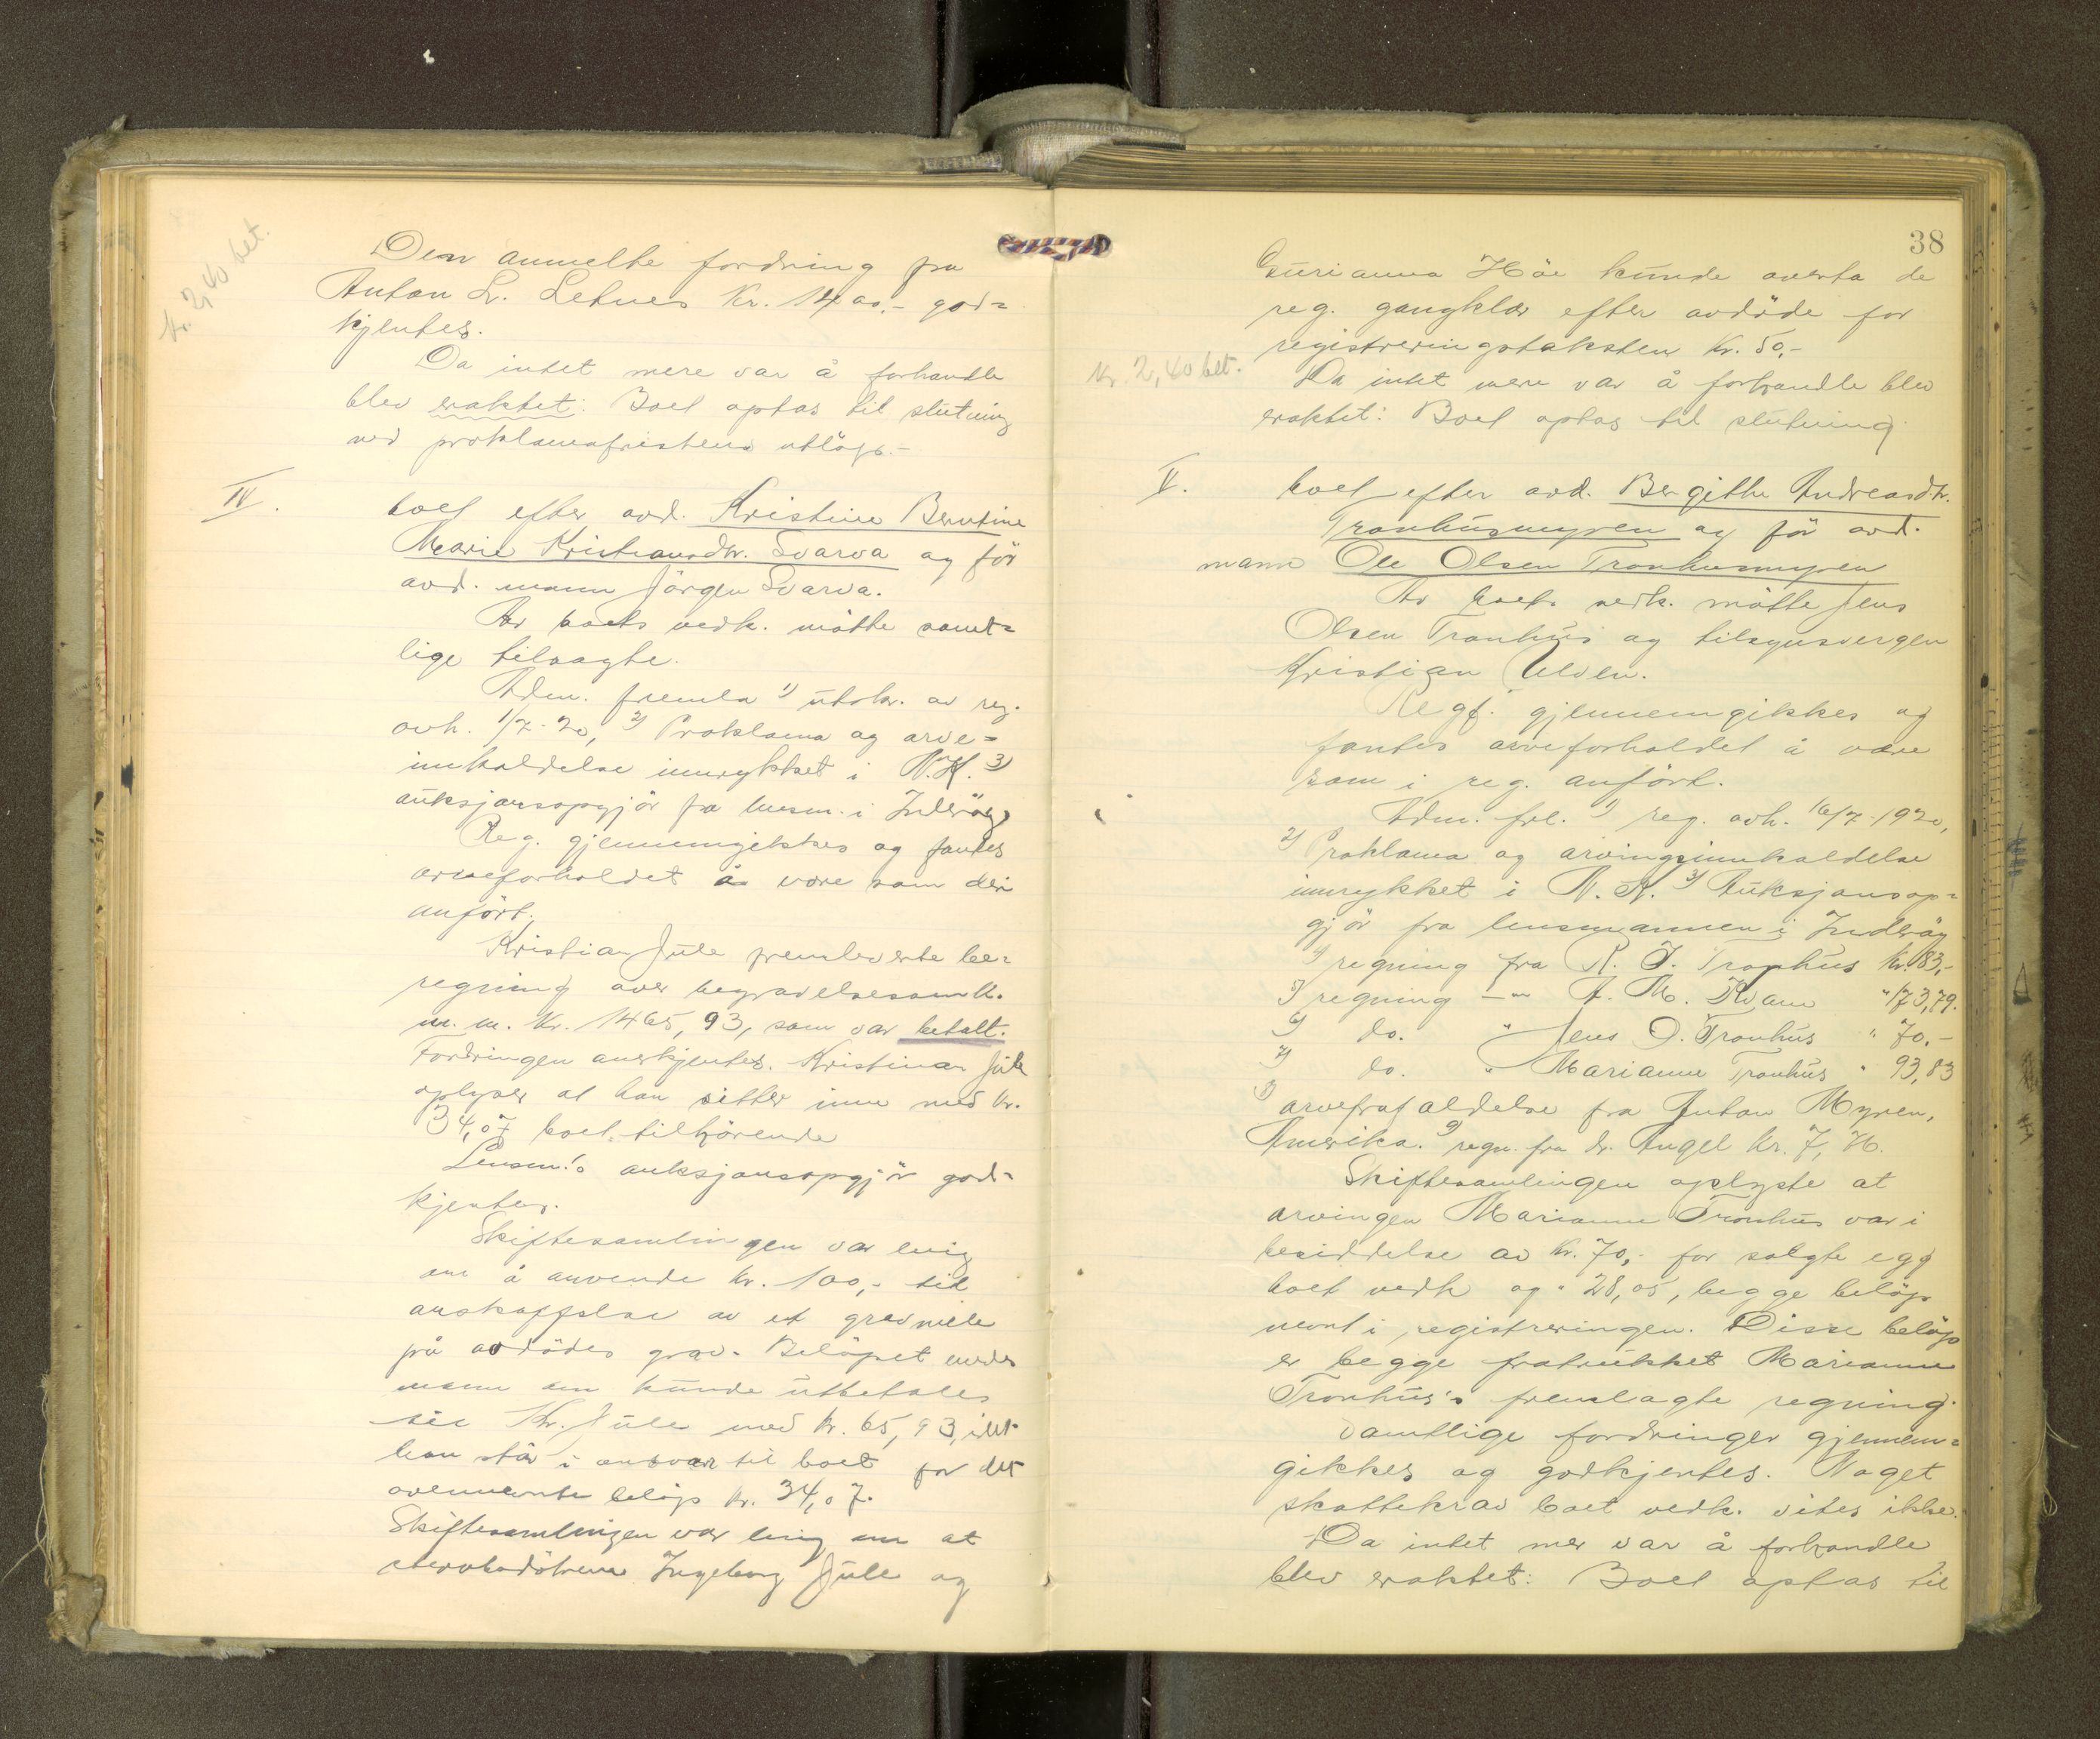 kr. 2,40 bet.
Den anmeldte fordring fra
Anton Lr. Letnes kr. 1400,- god=
kjentes.
Da intet mere var å forhandle
blev eraktet: Boet optas til slutning
ved proklamafristens utløp.-
IV. boet efter avd. Kristine Berntine
Marie Kristiansdtr. Svarva og før
avd. mann Jörgen Svarva.
Av boets vedk. møtte samt=
lige tilsagte.
Adm. fremla 1) utskr. av reg.
avh. 1/7-20, 2) Proklama og arve=
innkaldelse innrykket i N.K. 3)
auksjonsopgjör fra lensm. i Inderöy
Reg. gjennemgikkes og fantes
arveforholdet å være som deri
anført.
Kristian Jule fremleverte be=
regning over begravelsesomk.
m. m. kr. 1465,93, som var betalt.
Fordringen anerkjentes. Kristian Jule
oplyser at han sitter inne med kr.
34,07 boet tilhörende
Lensm.'s auksjonsopgjör god=
kjentes.
Skiftesamlingen var enig
om å anvende kr. 100,- til
anskaffelse av et gravmæle
på avdödes grav. Belöpet
man om kunde utbetales
til Kr. Jule med kr. 65,93, idet
han står i ansvar til boet for det
ovennevnte belöp kr. 34,07.
Skiftesamlingen var enig om at
stervbodötrene Ingeborg Jule og
38
Gurianna Häe kunde overta de
reg. gangklær efter avdöde for
registreringstaksten kr. 50,-
kr. 2,40 bet.
Da intet mere var å forhandle blev
eraktet: Boet optas til slutning
V. boet efter avd. Bergithe Andreasdtr.
Tronhusmyren og för avd.
mann Ole Olsen Tronhusmyren
Av boets vedk. møtte Jens
Olsen Tronhus og tilsynsvergen
Kristian Ulven.
Regf. gjennemgikkes og
fantes arveforholdet å være
som i reg. anfört.
Adm. frl. 1) reg. avh. 16/7-1920,
2) Proklama og arvingsinnkaldelse
innrykket i N. K. 3) Auksjonsop=
gjör fra lensmannen i Inderöy
4) regning fra R. J. Tronhus kr. 83,-
5) regning -"- A. M. Kvam " 173,79.
6) do. " Jens O. Tronhus " 70,-
7) do. " Marianne Tronhus " 93,83
8) arvefrafaldelse fra Anton Myren,
Amerika. 9) regn. fra dr. Angel kr. 7,
Skiftesamlingen oplyste at
arvingen Marianne Tronhus var i
besiddelse av kr. 70,- for solgte egg
boet vedk og " 28,05, begge belöp
nevnt i registreringen. Disse belöp
er begge fratrukket Marianne
Tronhus's fremlagte regning.
Samtlige fordringer gjennem=
gikkes og godkjentes. Noget
skattekrav boet vedk. vites ikke.
Da intet mer var å forhandle
blev eraktet: Boet optas til